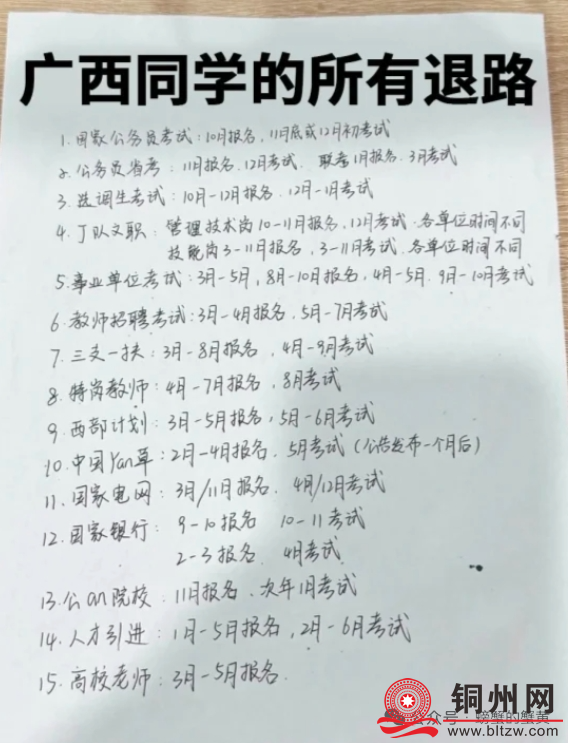 广西同学的所有退路
1.国家公务员考试:10月报名,11月底或12月初考试
2.公务员省考:11月报名、12月考试、联考1月报名、3月考试
3.选调生考试:10月-12月报名、12月-1月考试
4.丁队文职:管理技术岗10-11月报名,12月考试、各单位时间不同
技能岗3-11月报名,3-11月考试、各单位时间不同
5.事业单位考试:3月-5月,8月-10月报名,4月-5月、9月-10月考试
6.教师招聘考试:3月-4月报名、5月-7月考试
7.三支一扶:3月-8月报名,4月-9月考试
8.特岗教师:4月-7月报名,8月考试
9.西部计划:3月-5月报名,5月-6月考试
10.中国Yan草:2月-4月报名、5月考试(公告发布一个月后)
11.国家电网:3月/11月报名、4月/12月考试
12.国家银行:9-10报名 10-11考试
2-3报名、4月考试
13.公an院校:11月报名、次年1月考试
14.人才引进:1月-5月报名,2月-6月考试
15.高校老师:3月-5月报名.
铜州网
公众号·螃蟹的蟹黄
www.bltzw.com